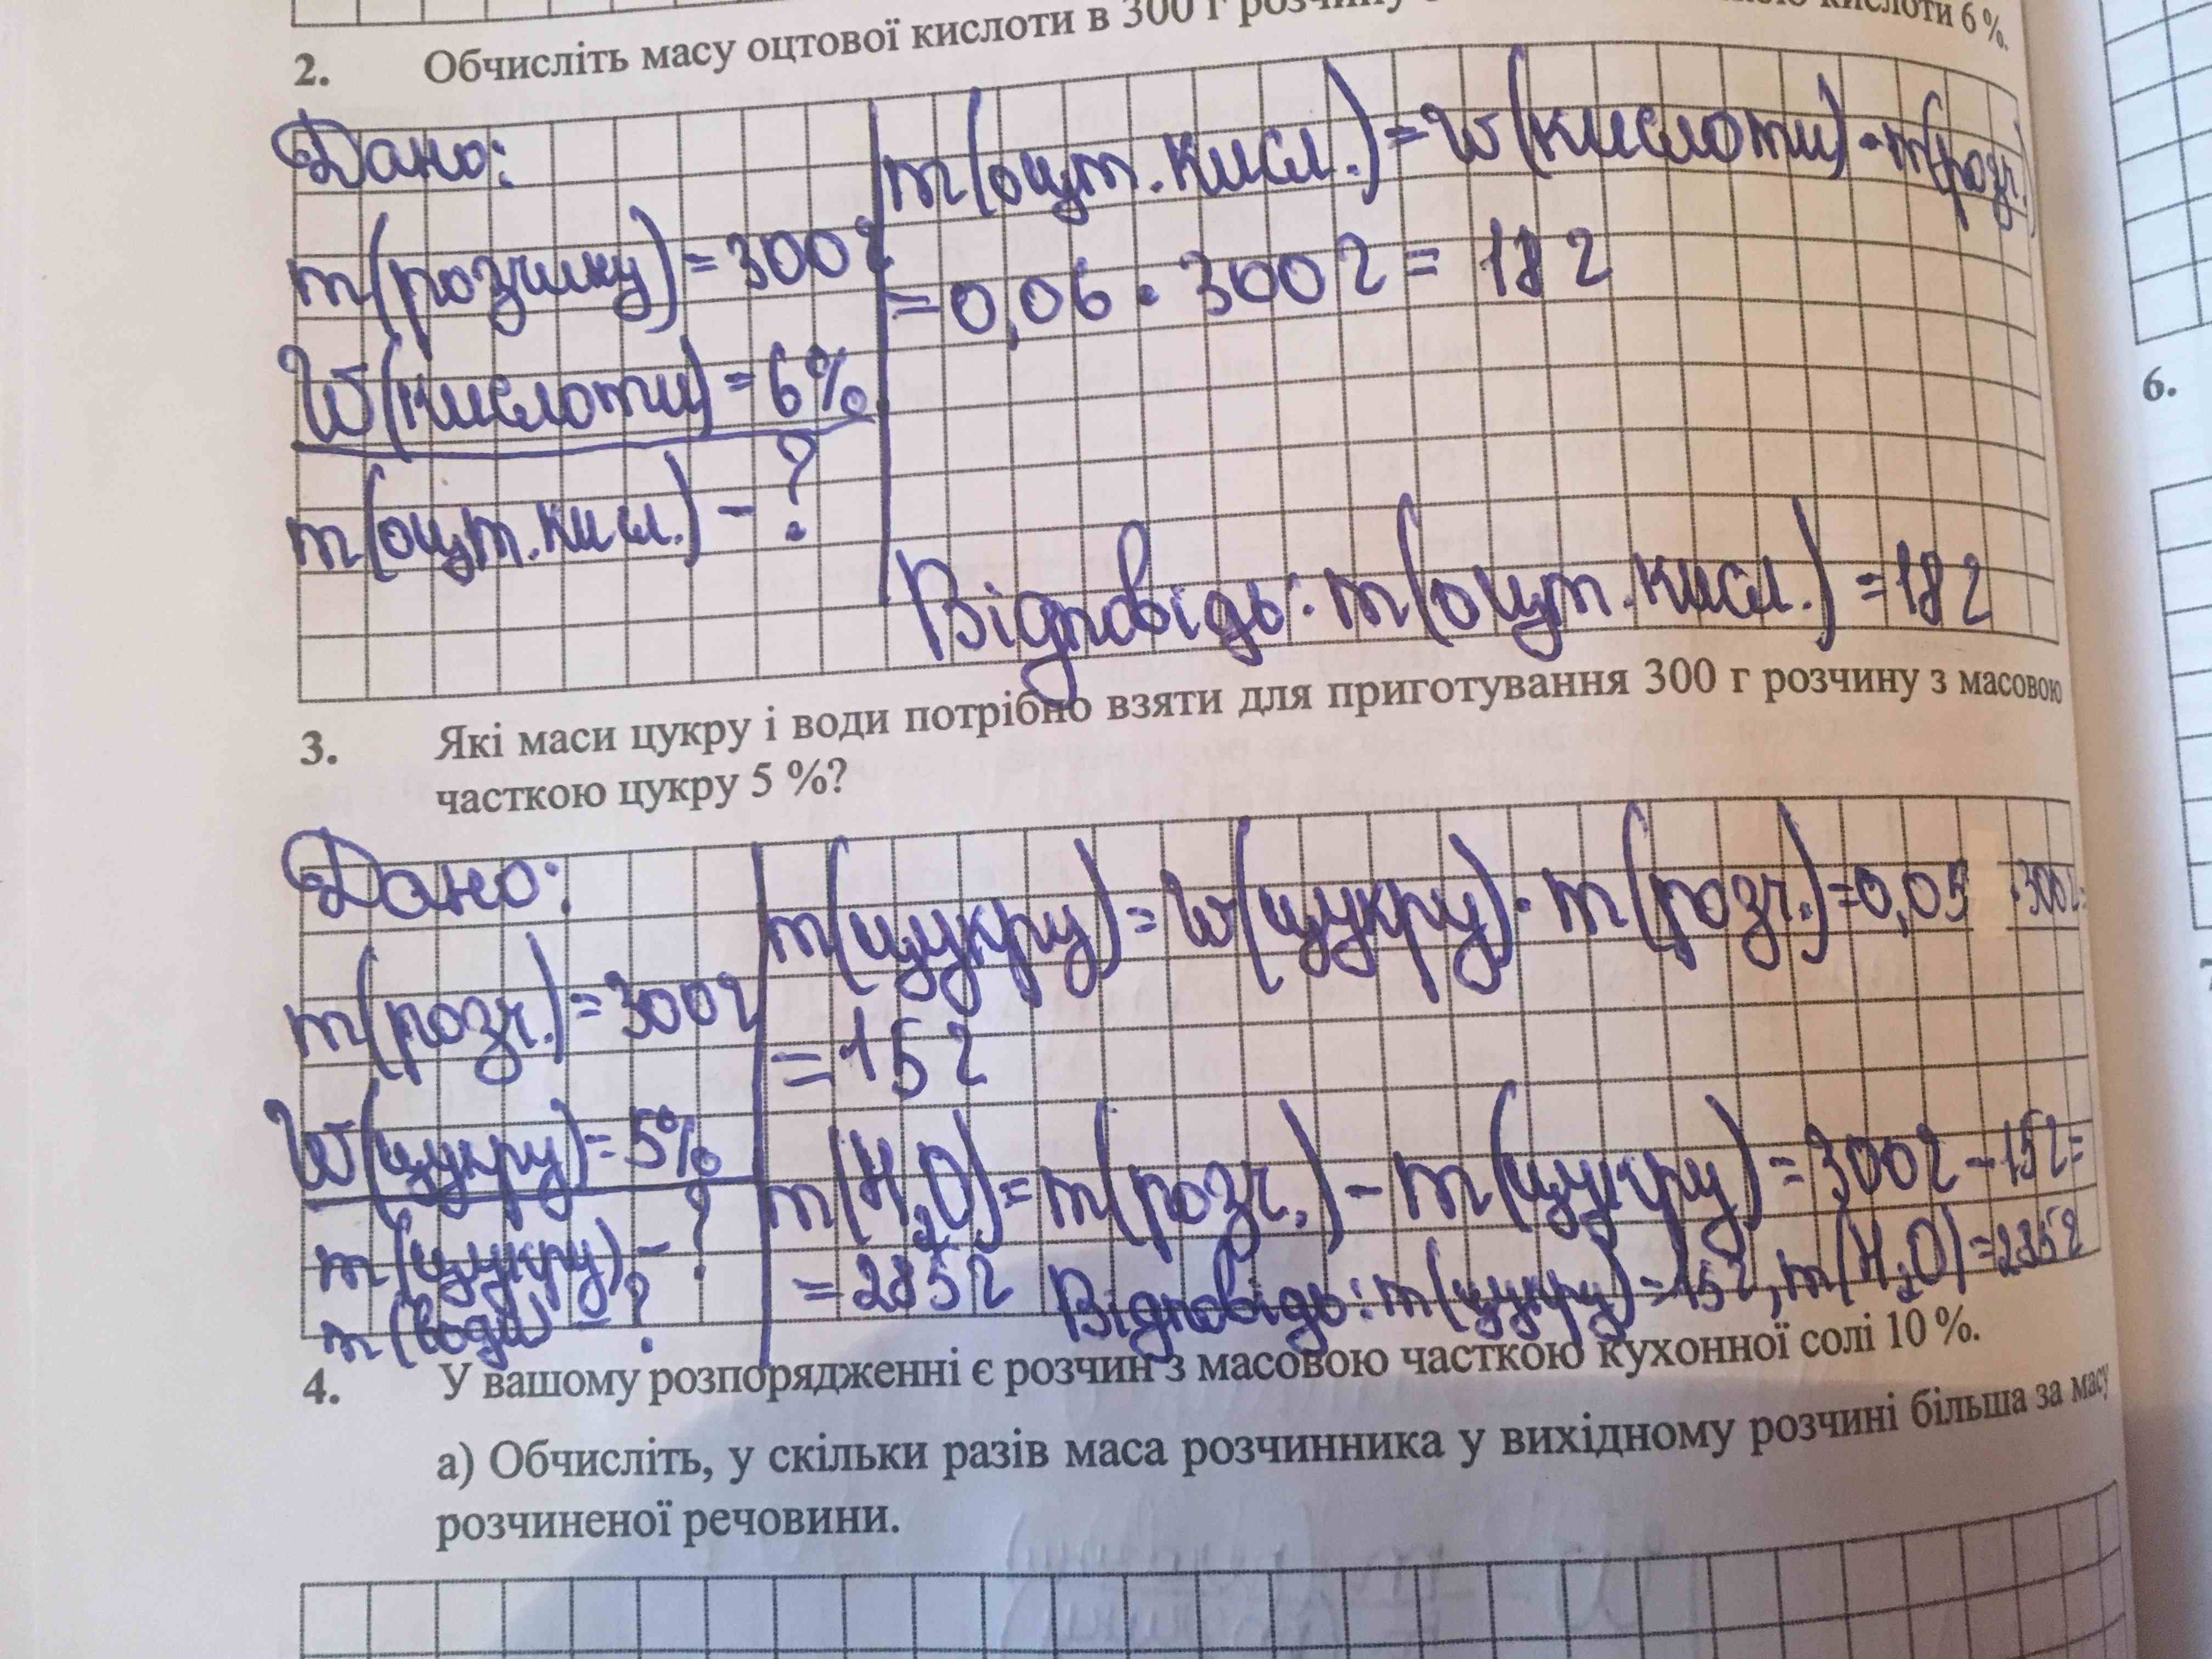 2. Обчисліть масу оцтової кислоти в 300 г розчину кислоти 6 %.
Дано:
m(розчину) = 300 г
W(кислоти) = 6%
m(оцт.кисл.) - ?
m(оцт.кисл.) = W(кислоти) · m(розч.)
= 0,06 · 300 г = 18 г
Відповідь: m(оцт.кисл.) = 18 г
3. Які маси цукру і води потрібно взяти для приготування 300 г розчину з масовою
часткою цукру 5 %?
Дано:
m(розч.) = 300 г
W(цукру) = 5%
m(цукру) - ?
m(води) - ?
m(цукру) = W(цукру) · m(розч.) = 0,05 · 300 г =
= 15 г
m(H₂O) = m(розч.) - m(цукру) = 300 г - 15 г =
= 285 г Відповідь: m(цукру) = 15 г, m(H₂O) = 285 г
4. У вашому розпорядженні є розчин з масовою часткою кухонної солі 10 %.
а) Обчисліть, у скільки разів маса розчинника у вихідному розчині більша за масу
розчиненої речовини.
6.